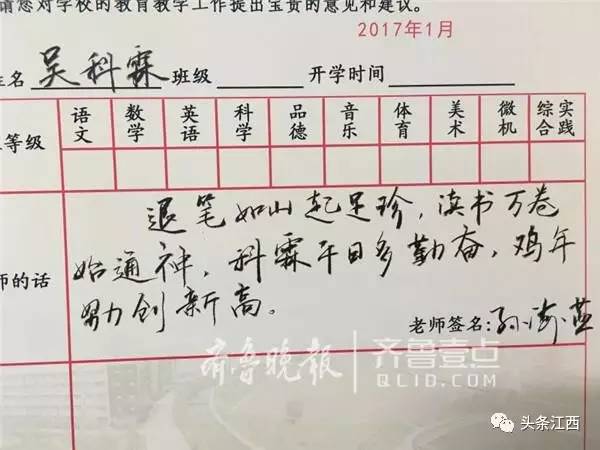 请您对学校的教育教学工作提出宝贵的意见和建议。
2017年1月
名 吴科霖 班级 开学时间
等级 语文 数学 英语 科学 品德 音乐 体育 美术 微机 综合实践
师的话
退笔如山起足珍，读书万卷
始通神，科霖平日多勤奋，鸡年
努力创新高。
老师签名:
齐鲁晚报 齐鲁壹点
QLID.COM
头条江西